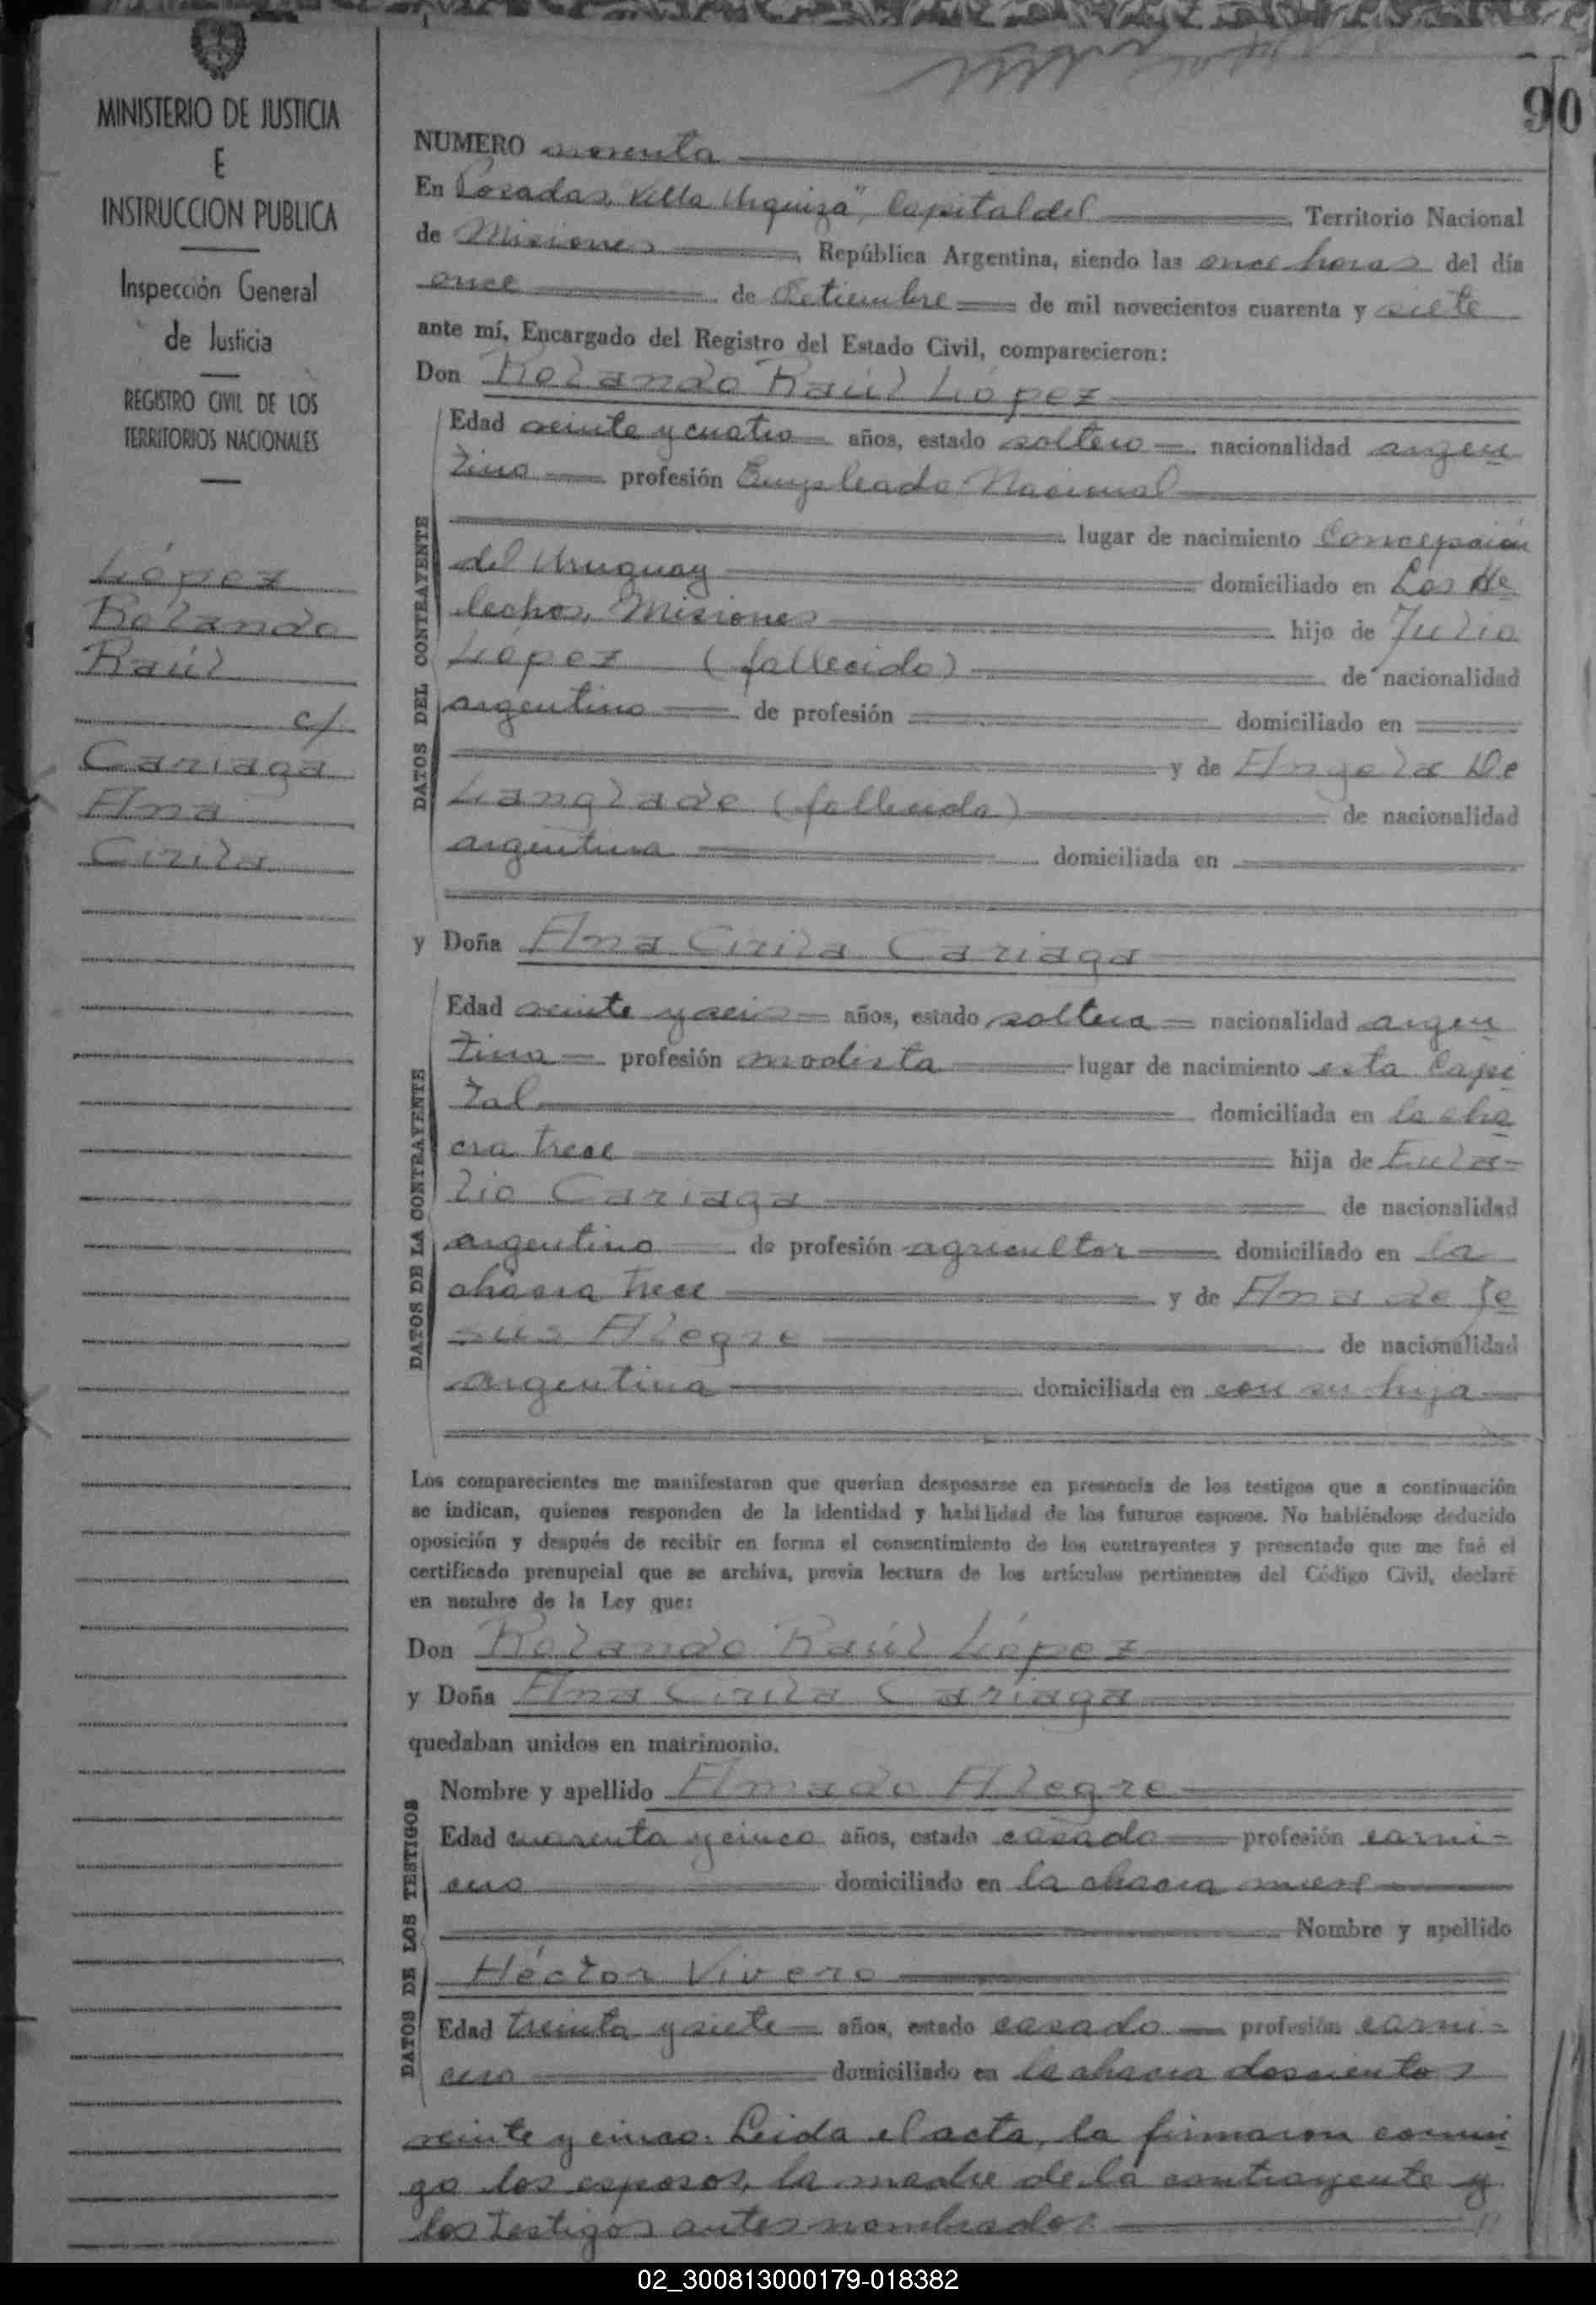 90
MINISTERIO DE JUSTICIA
E
INSTRUCCION PUBLICA
Inspección General
de Justicia
REGISTRO CIVIL DE LOS
TERRITORIOS NACIONALES
López
Rolando
Raúl
c/
Cariaga
Ana
Cirila
NUMERO noventa
En Posadas, Villa Urquiza", Capital del Territorio Nacional
de Misiones, República Argentina, siendo las once horas del día
once de Setiembre de mil novecientos cuarenta y siete
ante mí, Encargado del Registro del Estado Civil, comparecieron:
Don Rolando Raúl López
DATOS DEL CONTRAYENTE
Edad veinte y cuatro años, estado soltero nacionalidad argen
tino profesión Empleado Nacional
lugar de nacimiento Concepción
del Uruguay domiciliado en Los He
lechos, Misiones hijo de Julio
López (fallecido) de nacionalidad
argentino de profesión domiciliado en
y de Angela De
Langlade (fallecida) de nacionalidad
argentina domiciliada en
y Doña Ana Cirila Cariaga
DATOS DE LA CONTRAYENTE
Edad veinte y seis años, estado soltera nacionalidad argen
tina profesión modista lugar de nacimiento esta Capi
tal domiciliada en la cha
cra trece hija de Eula-
lio Cariaga de nacionalidad
argentino de profesión agricultor domiciliado en la
chacra trece y de Ana de Je
sus Alegre de nacionalidad
argentina domiciliada en con su hija
Los comparecientes me manifestaron que querían desposarse en presencia de los testigos que a continuación
se indican, quienes responden de la identidad y habilidad de los futuros esposos. No habiéndose deducido
oposición y después de recibir en forma el consentimiento de los contrayentes y presentado que me fué el
certificado prenupcial que se archiva, previa lectura de los artículos pertinentes del Código Civil, declaré
en nombre de la Ley que:
Don Rolando Raúl López
y Doña Ana Cirila Cariaga
quedaban unidos en matrimonio.
DATOS DE LOS TESTIGOS
Nombre y apellido Amado Alegre
Edad cuarenta y cinco años, estado casado profesión carni-
cero domiciliado en la chacra nueve
Nombre y apellido
Héctor Vivero
Edad treinta y siete años, estado casado profesión carni-
cero domiciliado en la chacra doscientos
veinte y cinco. Leida el acta, la firmaron conmi
go los esposos, la madre de la contrayente y
los testigos antes nombrados.
02_300813000179-018382